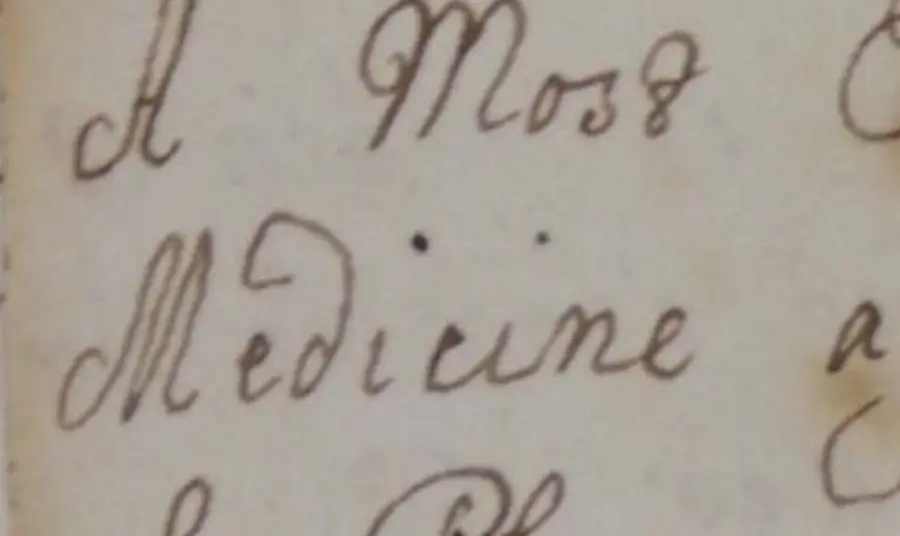 A Most
Medicine a